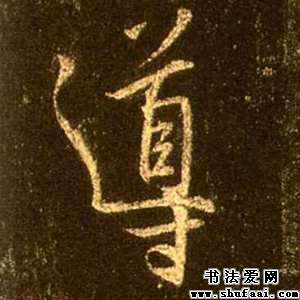 導
书法爱网
www.shufaai.com